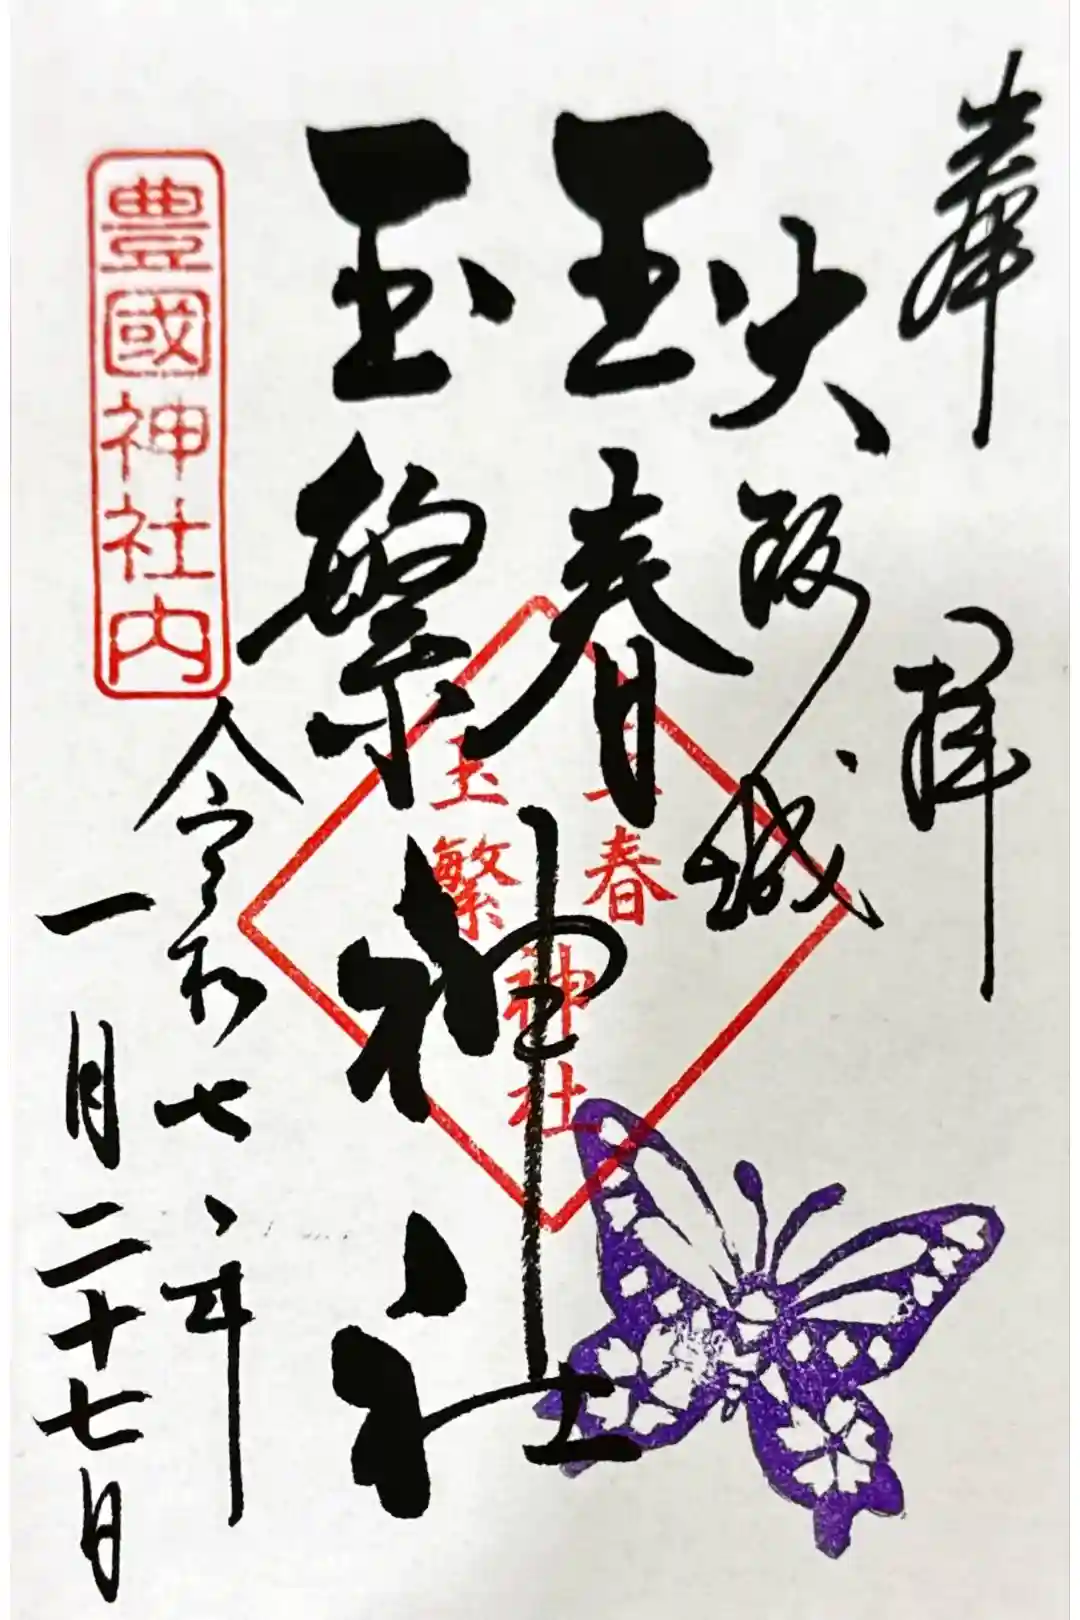 奉拝
大阪城
玉春
玉繁
神社
春
玉繁
神社
豊國神社内
令和七年
一月二十七日